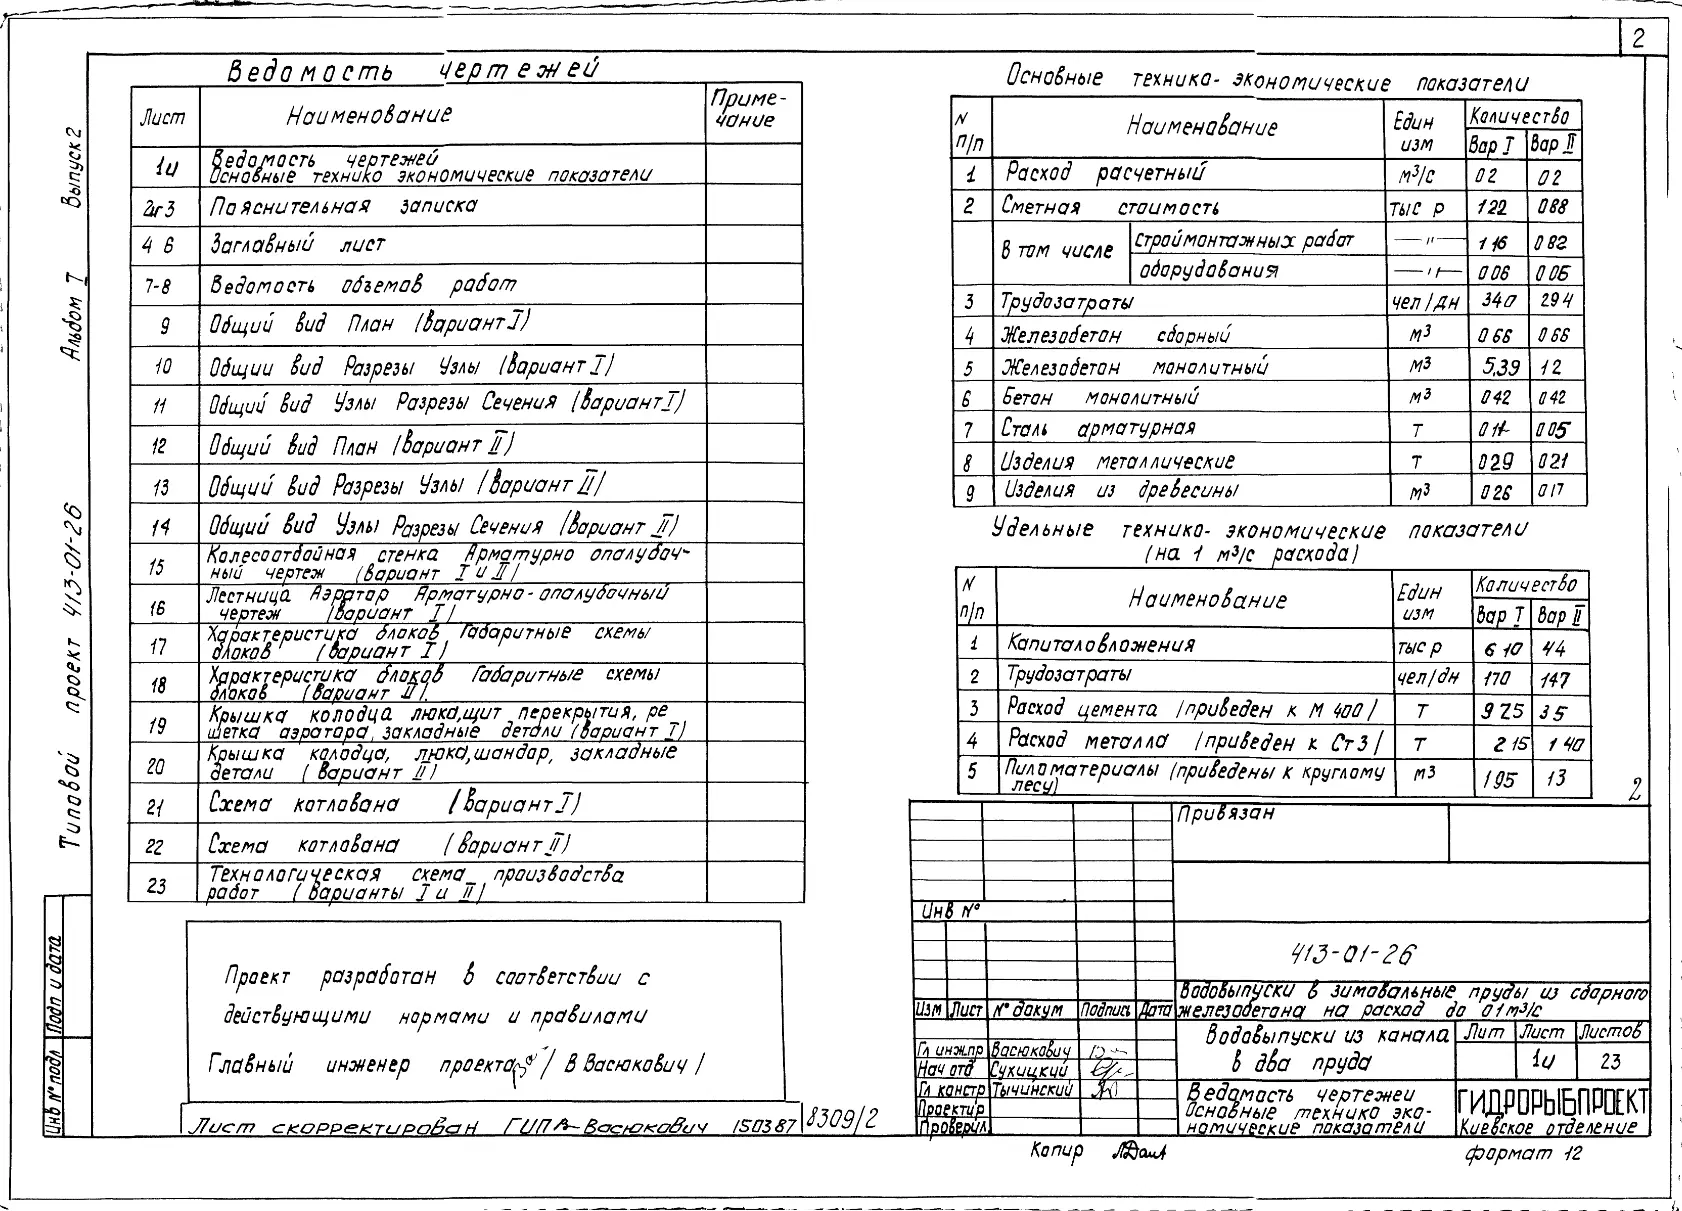 2
Типовой проект 413-01-26 Альбом I Выпуск 2
Ведомость чертежей
Лист Наименование Приме-
чание
1и Ведомость чертежей
Основные технико экономические показатели
2и3 Пояснительная записка
4 6 Заглавный лист
7-8 Ведомость объемов работ
9 Общий вид План (Вариант I)
10 Общии вид Разрезы Узлы (Вариант I)
11 Общий вид Узлы Разрезы Сечения (Вариант I)
12 Общий вид План (Вариант II)
13 Общий вид Разрезы Узлы (Вариант II)
14 Общий вид Узлы Разрезы Сечения (Вариант II)
15 Колесоотбойная стенка Арматурно опалубоч-
ный чертеж (Вариант I и II)
16 Лестница Аэратор Арматурно-опалубочный
чертеж (Вариант I)
17 Характеристика блоков Габаритные схемы
блоков (Вариант I)
18 Характеристика блоков Габаритные схемы
блоков (Вариант II).
19 Крышка колодца люка, щит перекрытия, ре
шетка аэратора, закладные детали (Вариант I)
20 Крышка колодца, люка, шандор, закладные
детали (Вариант II)
21 Схема котлована (Вариант I)
22 Схема котлована (Вариант II)
23 Технологическая схема производства
работ (Варианты I и II)
Проект разработан в соответствии с
действующими нормами и правилами
Главный инженер проекта / В Васюкович /
Лист скорректирован ГИП Васюкович 150387
8309/2
Инв № подл Подп и дата
Основные технико-экономические показатели
N
п/п Наименование Един
изм Количество
Вар I Вар II
1 Расход расчетный м³/с 02 02
2 Сметная стоимость тыс р 122 088
В том числе строймонтажных работ —"— 116 082
оборудования —"— 006 006
3 Трудозатраты чел/дн 340 294
4 Железобетон сборный м³ 066 066
5 Железобетон монолитный м³ 5,39 12
6 Бетон монолитный м³ 042 042
7 Сталь арматурная Т 005
8 Изделия металлические Т 029 021
9 Изделия из древесины м³ 026 017
Удельные технико-экономические показатели
(на 1 м³/с расхода)
N
п/п Наименование Един
изм Количество
Вар I Вар II
1 Капиталовложения тыс р 6 10 44
2 Трудозатраты чел/дн 170 147
3 Расход цемента (приведен к М 400) Т 9 75 35
4 Расход металла (приведен к Ст 3) Т 2 15 1 40
5 Пиломатериалы (приведены к круглому
лесу) м3 195 13
2
Привязан
Инв №
413-01-26
Водовыпуски в зимовальные пруды из сборного
железобетона на расход до 01м³/с
Изм Лист № докум Подпись Дата
Водовыпуски из канала
в два пруда
Лит Лист Листов
1и 23
Гл инж.пр Васюкович
Нач отд Сухицкий
Гл констр Тычинский
Проектир
Проверил
Ведомость чертежеи
Основные технико эко-
номические показатели
ГИДРОРЫБПРОЕКТ
Киевское отделение
Копир
формат 12